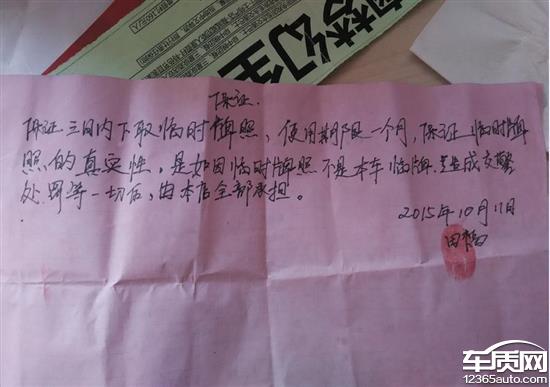 保证.
保证三日内下取临时牌照，使用期限一个月，保证临时牌
照的真实性，是如因临时牌照不是本车临牌造成交警
处罚等一切后，由本店全部承担。
2015年10月11日
车质网
12365auto.com